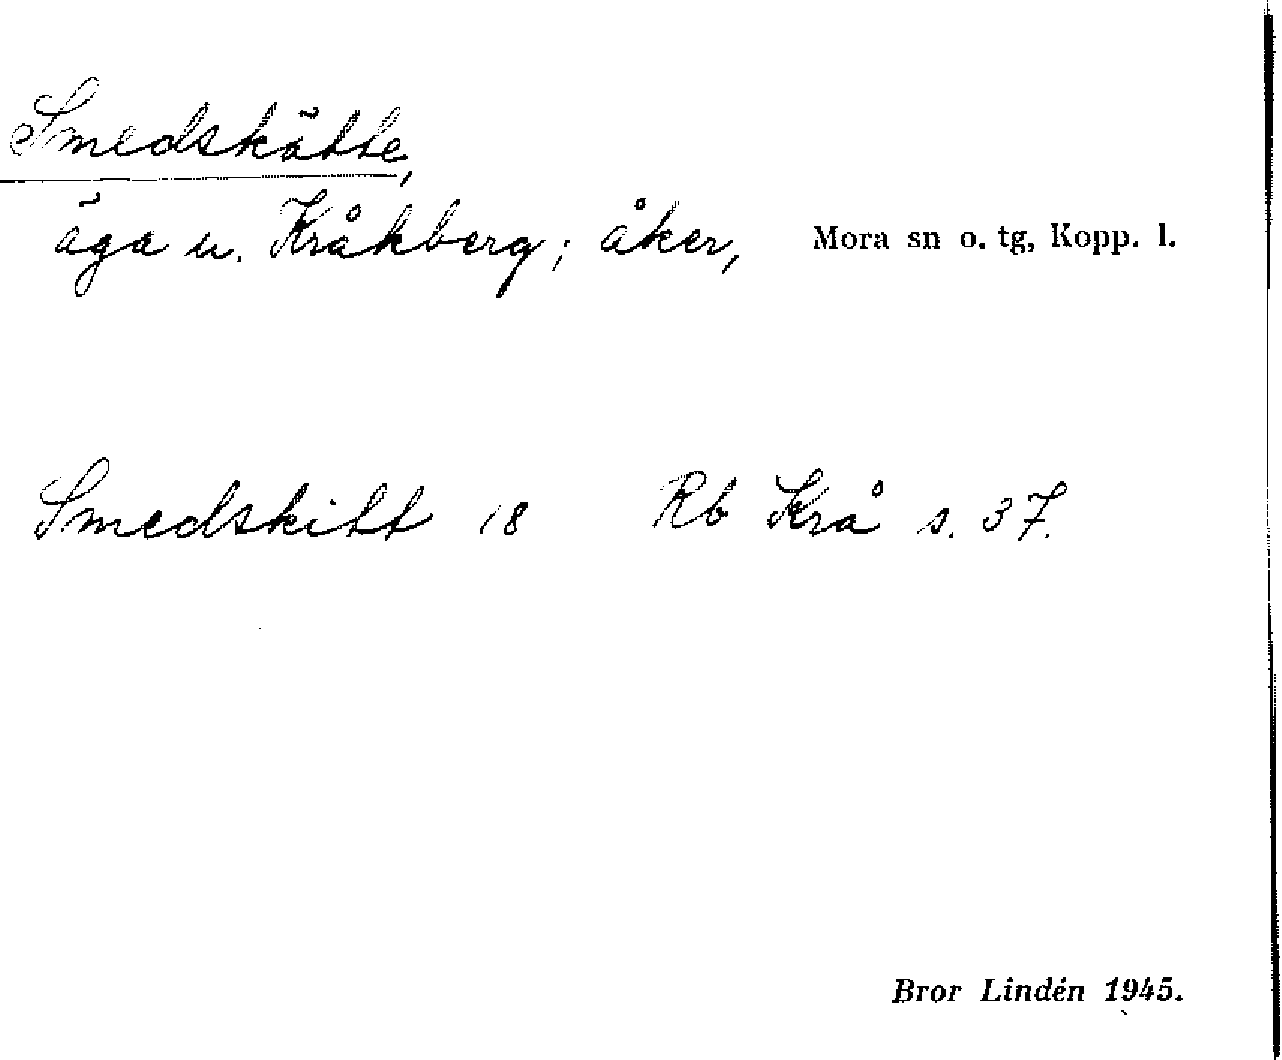 Smedskätte,
äga u. Kråkberg; åker, Mora sn o. tg, Kopp. l.
Smedskitt 18 Rb Krå s. 37.
Bror Lindén 1945.